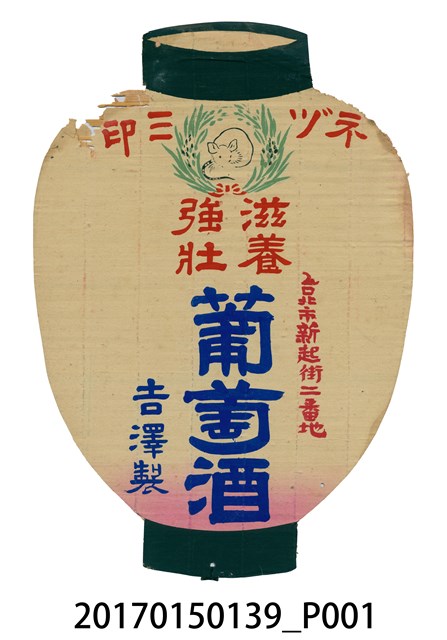 ネヅミ印
滋養
強壯
台北市新起街二番地
葡萄酒
吉澤製
20170150139_P001